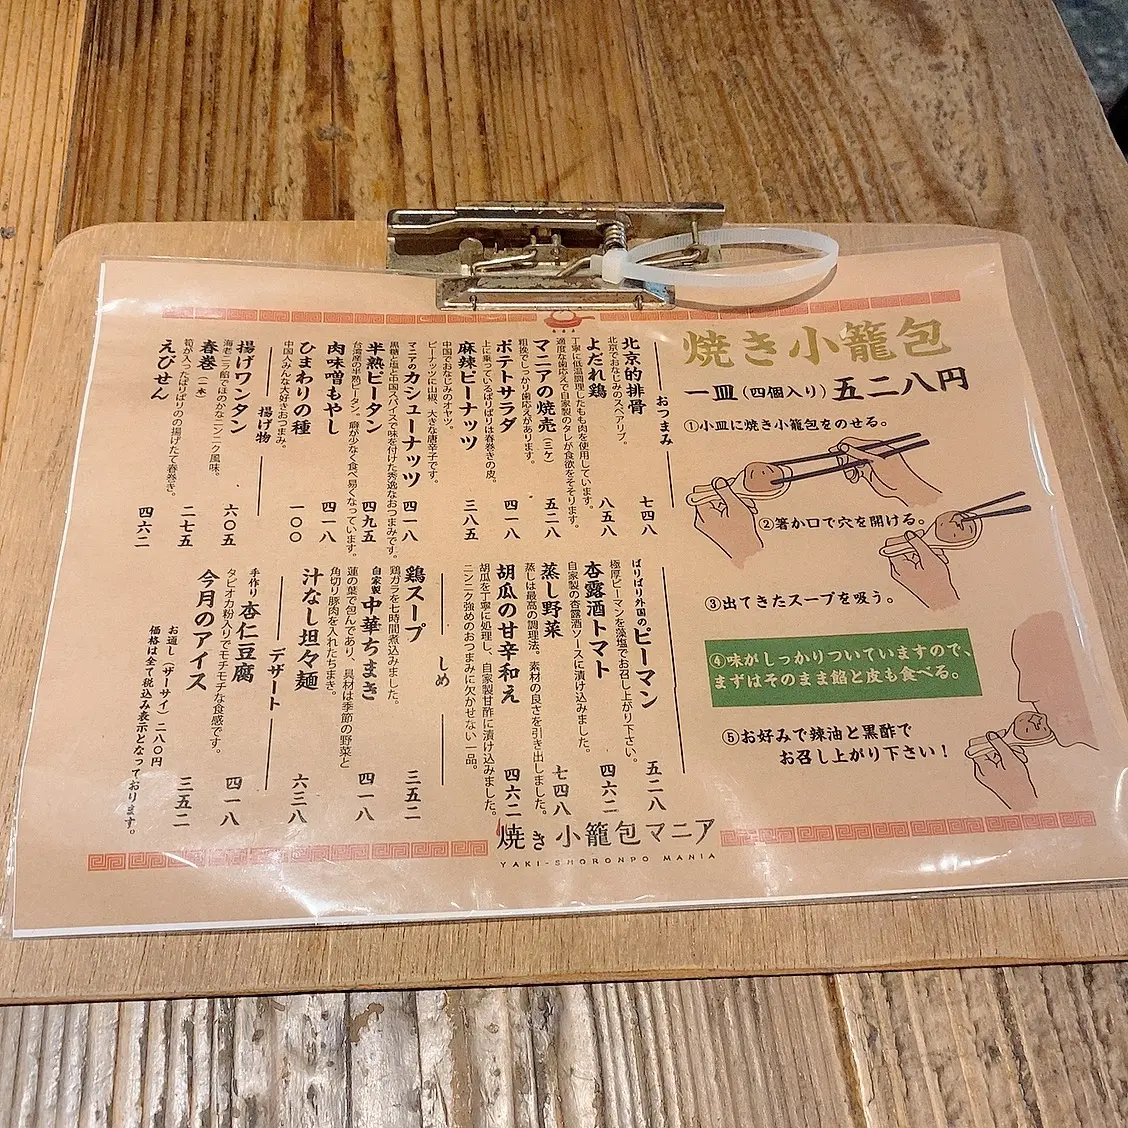 焼き小籠包
一皿(四個入り)五二八円
①小皿に焼き小籠包をのせる。
②箸か口で穴を開ける。
③出てきたスープを吸う。
④味がしっかりついていますので、
まずはそのまま餡と皮も食べる。
⑤お好みで辣油と黒酢で
お召し上がり下さい!
おつまみ
北京的排骨 七四八
北京でおなじみのスペアリブ。
よだれ鶏 八五八
丁寧に低温調理したもも肉を使用しています。
適度な歯応えで自家製のタレが食欲をそそります。
マニアの焼売(三ケ) 五二八
粗挽でしっかり歯応えがあります。
ポテトサラダ 四一八
上に乗っているぱりぱりは春巻きの皮。
麻辣ピーナッツ 三八五
中国でおなじみのナヤツ。
ピーナッツに山椒、大きな唐辛子です。
マニアのカシューナッツ 四一八
黒糖と塩と中国スパイスで味を付けた秀逸なおつまみです。
半熟ピータン 四九五
台湾産の半熟ピータン。癖が少なく食べ易くなっています。
肉味噌もやし 四一八
ひまわりの種 一〇〇
中国人みんな大好きおつまみ。
揚げ物
揚げワンタン 六〇五
海老ニラ餡でほのかなニンニク風味。
春巻(一本) 二七五
筍が入ったぱりぱりの揚げたて春巻き。
えびせん 四六二
ぱりぱり外国のピーマン 五二八
極厚ピーマンを藻塩でお召し上がり下さい。
杏露酒トマト 四六二
自家製の杏露酒ソースに漬け込みました。
蒸し野菜 七四八
蒸しは最高の調理法。素材の良さを引き出しました。
胡瓜の甘辛和え 四六二
胡瓜を丁寧に処理し、自家製甘酢に漬け込みました。
ニンニク強めのおつまみに欠かせない一品。
しめ
鶏スープ 三五二
鶏ガラを七時間煮込みました。
自家製中華ちまき 四一八
蓮の葉で包んであり、具材は季節の野菜と
角切り豚肉を入れたちまき。
汁なし坦々麺 六三八
デザート
手作り杏仁豆腐 四一八
タピオカ粉入りでモチモチな食感です。
今月のアイス 三五二
お通し(ザーサイ)二八〇円
価格は全て税込み表示となっております。
焼き小籠包マニア
YAKI-SHORONPO MANIA